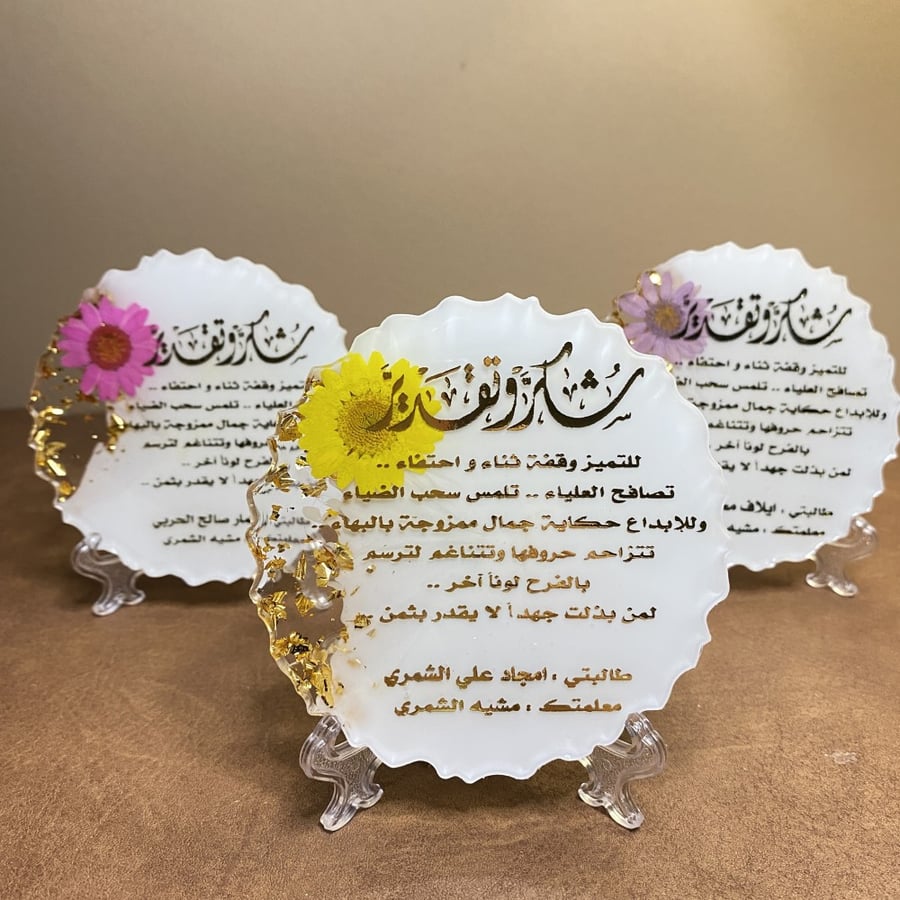 شُكر وتقدير
للتميز وقفة ثناء و احتفاء ..
تصافح العلياء .. تلمس سحب الضياء
وللإبداع حكاية جمال ممزوجة بالبهاء
تتزاحم حروفها وتتناغم لترسم
بالفرح لوناً آخر ..
لمن بذلت جهداً لا يقدر بثمن ..
طالبتي : امجاد علي الشمري
معلمتك : مشيه الشمري
شُكر وتقدير
للتميز وقفة ثناء و احتفاء ..
تصافح العلياء .. تلمس سحب الضياء
وللإبداع حكاية جمال ممزوجة بالبهاء
تتزاحم حروفها وتتناغم لترسم
بالفرح لوناً آخر ..
لمن بذلت جهداً لا يقدر
طالبتي : ايلاف
معلمتك : مشيه
شُكر وتقدير
وقفة ثناء و احتفاء ..
العلياء .. تلمس سحب الضياء
حكاية جمال ممزوجة بالبهاء
حروفها وتتناغم لترسم
بالفرح لوناً آخر ..
جهداً لا يقدر بثمن ..
طالبتي : صالح الحربي
معلمتك : مشيه الشمري